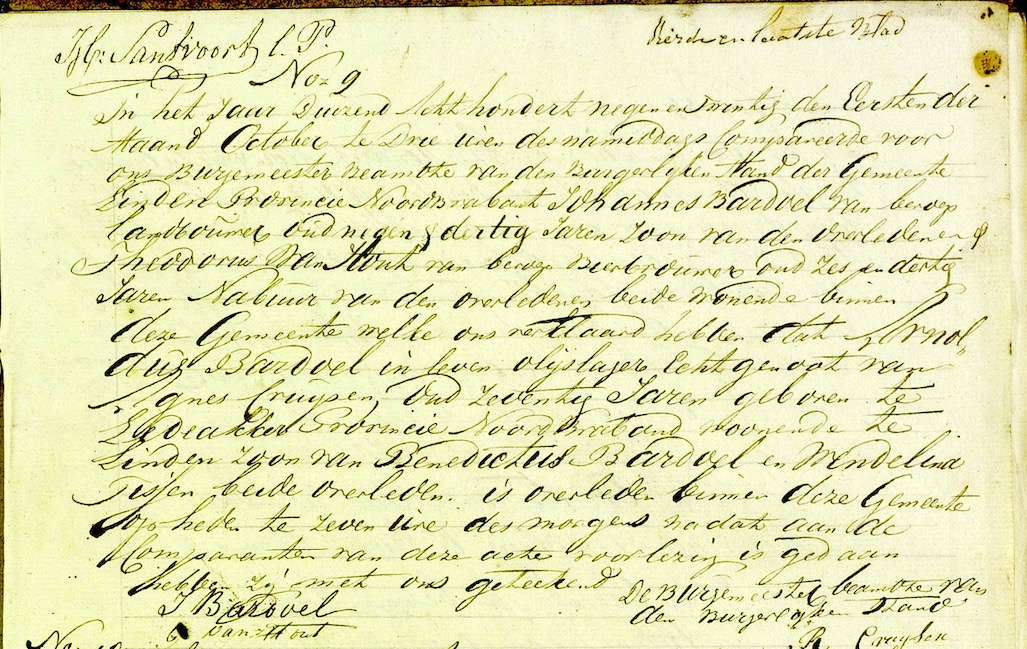 Vierde en laatste Blad
Sandvoort l. P.
No: 9
In het Jaar Duizend Acht hondert negen en Twintig den Eersten der
Maand October te Drie uren des namiddags Compareerde voor
ons Burgemeester Beambte van den Burgerlyken Stand der Gemeente
Linden Provincie Noordbrabant Johannes Bardoel van beroep
landbouwer oud negen & dertig Jaren Zoon van den Overledenen &
Theodorus Van Hout van beroep Bierbrouwer oud Zes en dertig
Jaren Nabuur van den overledenen beide wonende binnen
deze Gemeente welke ons verklaard hebben dat Arnol„
dus Bardoel in leven olijslager Echtgenoot van
Agnes Cruysen, Oud Zeventig Jaren geboren te
Provincie Noord Braband woonende te
Linden Zoon van Benedictus Bardoel en Wendelina
Tissen beide overleden. is overleden binnen deze Gemeente
op heden te Zeven Ure des morgens na dat aan de
Comparanten van deze acte voorlezing is gedaan
hebben Zij met ons geteekend
J Bardoel
van Hout
De Burgemeester beambte van
den Burgerlyken Stand
Cruysen